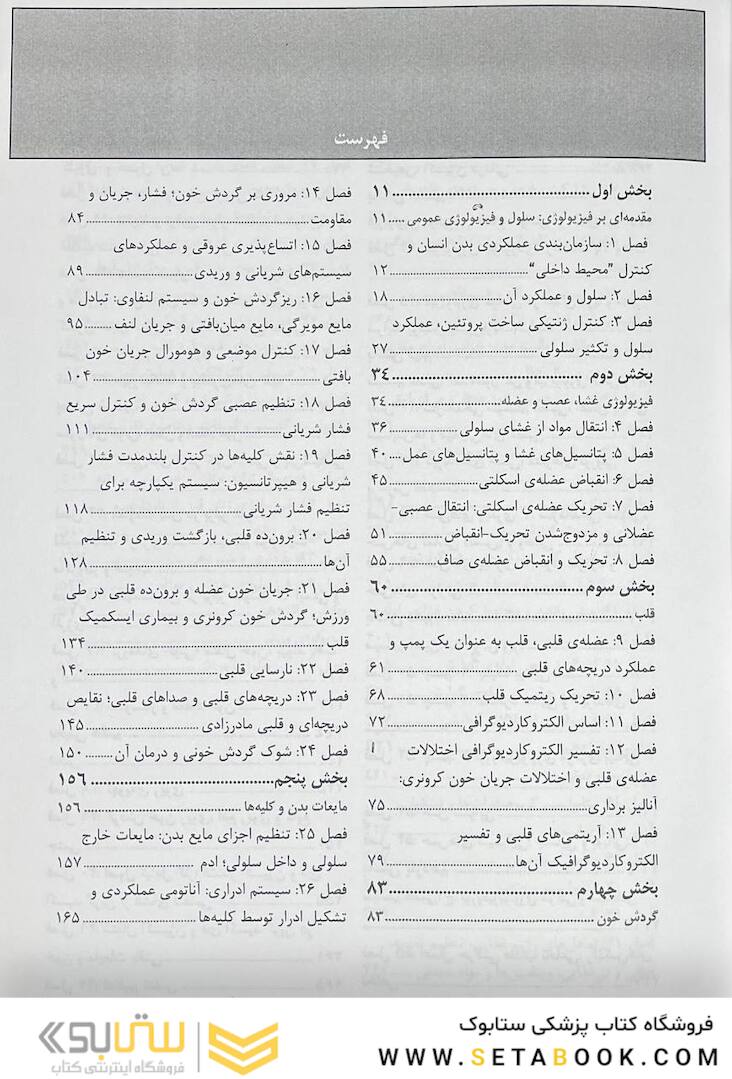 فهرست
بخش اول ........ ۱۱
مقدمه‌ای بر فیزیولوژی: سلول و فیزیولوژی عمومی ..... ۱۱
فصل ۱: سازمان‌بندی عملکردی بدن انسان و
کنترل "محیط داخلی" ........ ۱۲
فصل ۲: سلول و عملکرد آن ........ ۱۸
فصل ۳: کنترل ژنتیکی ساخت پروتئین، عملکرد
سلول و تکثیر سلولی ........ ۲۷
بخش دوم ........ ۳۴
فیزیولوژی غشا، عصب و عضله ........ ۳۴
فصل ۴: انتقال مواد از غشای سلولی ........ ۳۶
فصل ۵: پتانسیل‌های غشا و پتانسیل‌های عمل .... ۴۰
فصل ۶: انقباض عضله‌ی اسکلتی ........ ۴۵
فصل ۷: تحریک عضله‌ی اسکلتی: انتقال عصبی-
عضلانی و مزدوج‌شدن تحریک-انقباض ........ ۵۱
فصل ۸: تحریک و انقباض عضله‌ی صاف ........ ۵۵
بخش سوم ........ ۶۰
قلب ........ ۶۰
فصل ۹: عضله‌ی قلبی، قلب به عنوان یک پمپ و
عملکرد دریچه‌های قلبی ........ ۶۱
فصل ۱۰: تحریک ریتمیک قلب ........ ۶۸
فصل ۱۱: اساس الکتروکاردیوگرافی ........ ۷۲
فصل ۱۲: تفسیر الکتروکاردیوگرافی اختلالات
عضله‌ی قلبی و اختلالات جریان خون کرونری:
آنالیز برداری ........ ۷۵
فصل ۱۳: آریتمی‌های قلبی و تفسیر
الکتروکاردیوگرافیک آن‌ها ........ ۷۹
بخش چهارم ........ ۸۳
گردش خون ........ ۸۳
فصل ۱۴: مروری بر گردش خون؛ فشار، جریان و
مقاومت ........ ۸۴
فصل ۱۵: اتساع‌پذیری عروقی و عملکردهای
سیستم‌های شریانی و وریدی ........ ۸۹
فصل ۱۶: ریزگردش خون و سیستم لنفاوی: تبادل
مایع مویرگی، مایع میان‌بافتی و جریان لنف ........ ۹۵
فصل ۱۷: کنترل موضعی و هومورال جریان خون
بافتی ........ ۱۰۴
فصل ۱۸: تنظیم عصبی گردش خون و کنترل سریع
فشار شریانی ........ ۱۱۱
فصل ۱۹: نقش کلیه‌ها در کنترل بلندمدت فشار
شریانی و هیپرتانسیون: سیستم یکپارچه برای
تنظیم فشار شریانی ........ ۱۱۸
فصل ۲۰: برون‌ده قلبی، بازگشت وریدی و تنظیم
آن‌ها ........ ۱۲۸
فصل ۲۱: جریان خون عضله و برون‌ده قلبی در طی
ورزش؛ گردش خون کرونری و بیماری ایسکمیک
قلب ........ ۱۳۴
فصل ۲۲: نارسایی قلبی ........ ۱۴۰
فصل ۲۳: دریچه‌های قلبی و صداهای قلبی؛ نقایص
دریچه‌ای و قلبی مادرزادی ........ ۱۴۵
فصل ۲۴: شوک گردش خونی و درمان آن ........ ۱۵۰
بخش پنجم ........ ۱۵۶
مایعات بدن و کلیه‌ها ........ ۱۵۶
فصل ۲۵: تنظیم اجزای مایع بدن: مایعات خارج
سلولی و داخل سلولی؛ ادم ........ ۱۵۷
فصل ۲۶: سیستم ادراری: آناتومی عملکردی و
تشکیل ادرار توسط کلیه‌ها ........ ۱۶۵
فروشگاه کتاب پزشکی ستابوک
WWW.SETABOOK.COM
ستابوک
فروشگاه اینترنتی کتاب